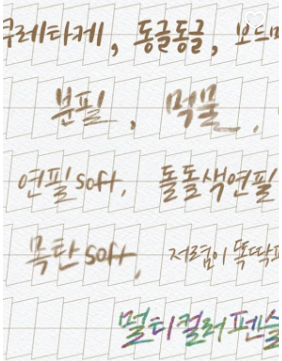 쿠레타케, 동글동글, 보드마
분필, 먹물,
연필 soft, 돌돌색연필
목탄 soft, 저렴이 똑딱
멀티컬러펜슬